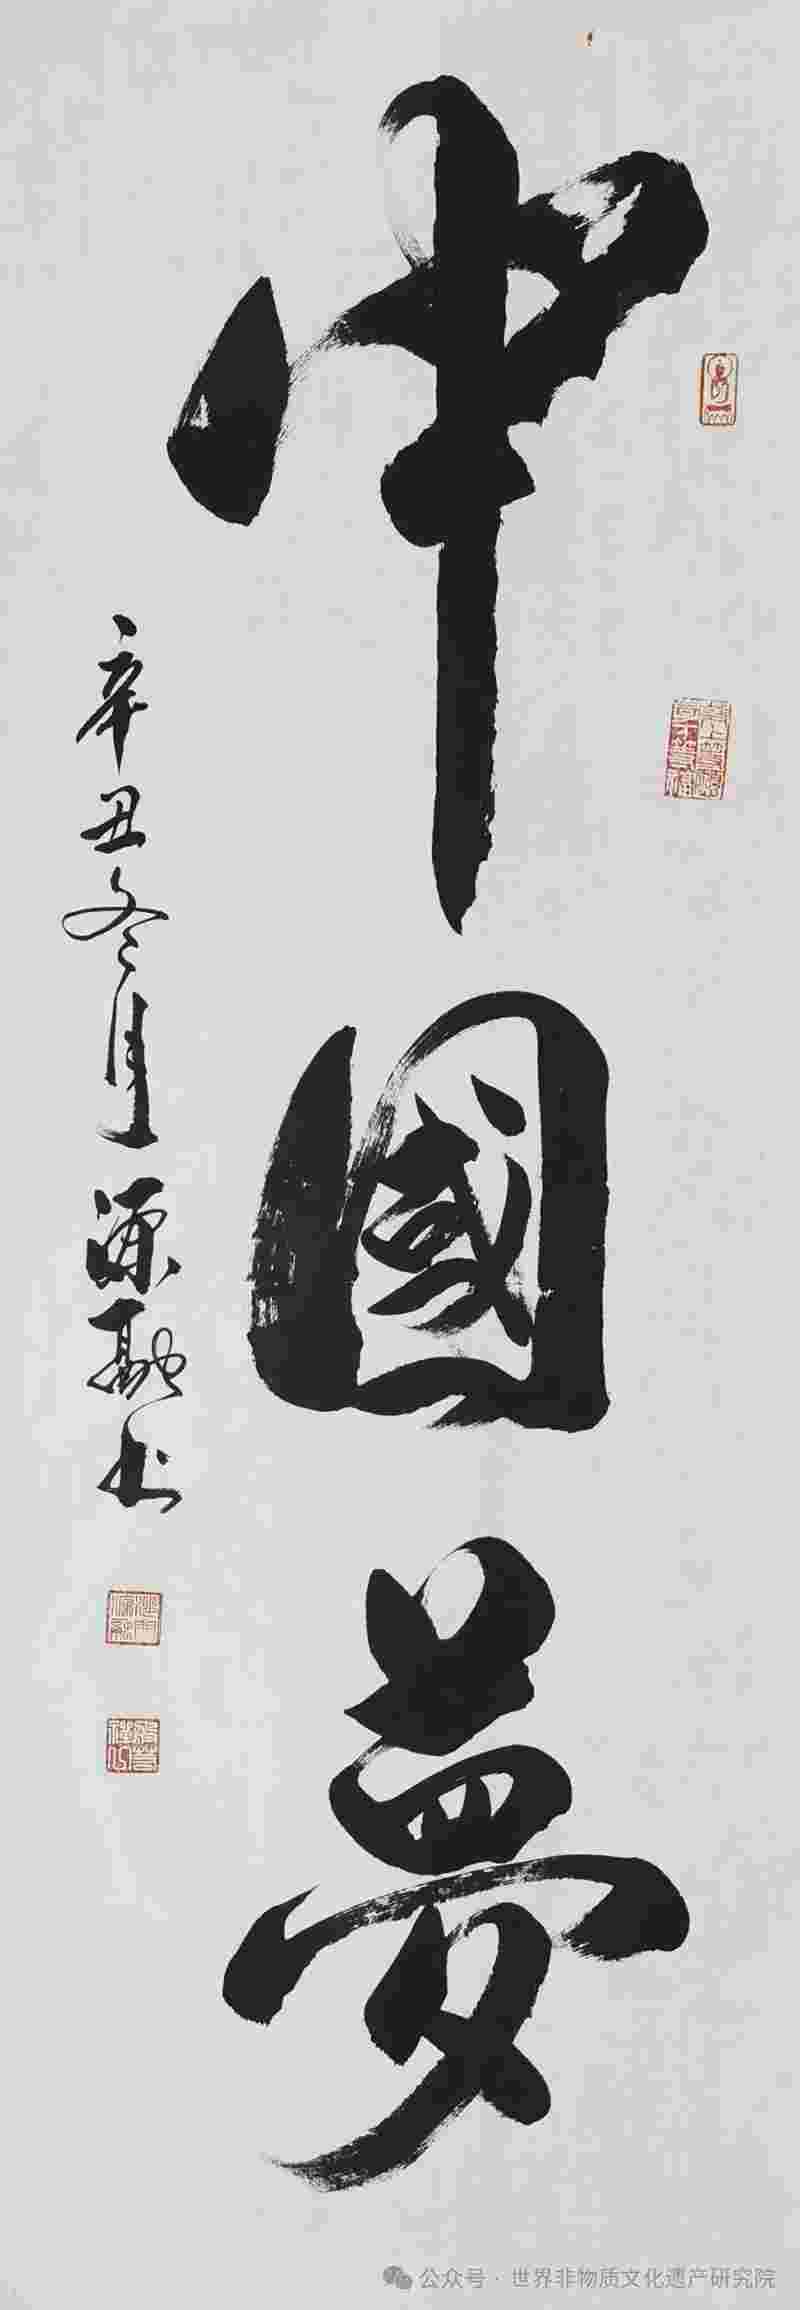 中國夢
辛丑冬月源融书
公众号·世界非物质文化遗产研究院